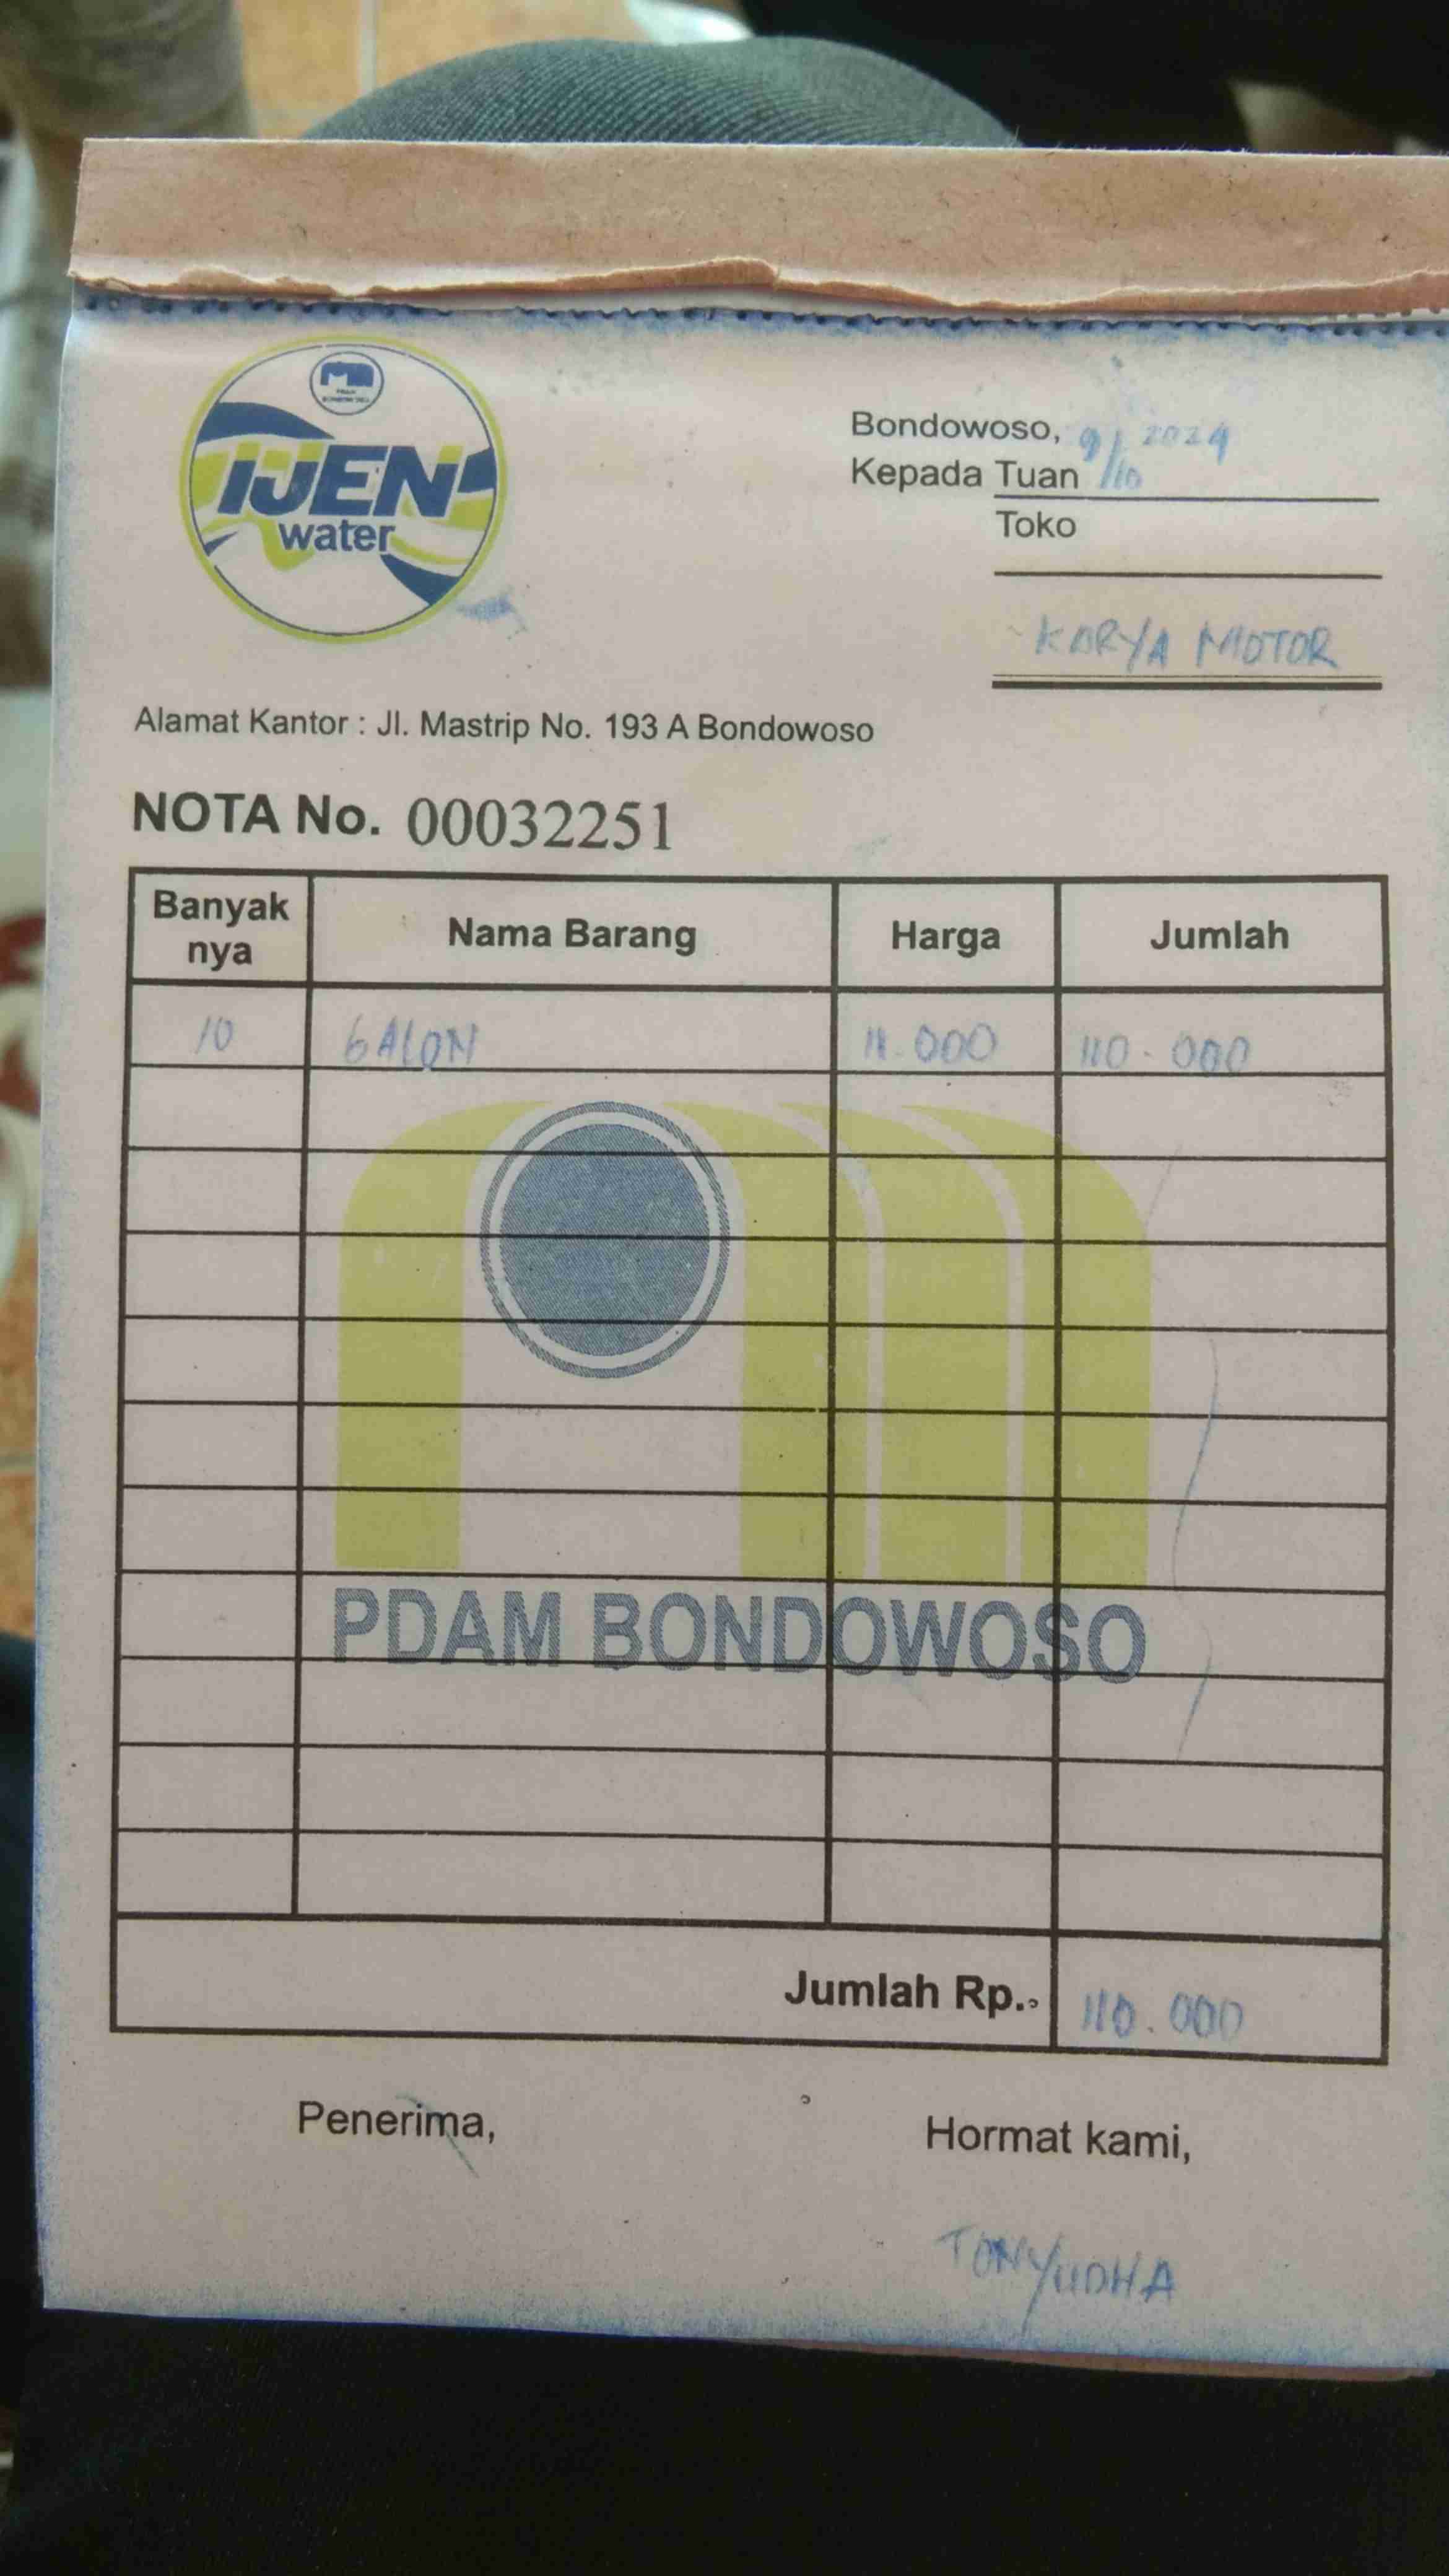 IJEN
water
Bondowoso, 9/10 2024
Kepada Tuan
Toko
KARYA MOTOR
Alamat Kantor : Jl. Mastrip No. 193 A Bondowoso
NOTA No. 00032251
Banyak nya Nama Barang Harga Jumlah
10 GALON 11.000 110.000
PDAM BONDOWOSO
Jumlah Rp. 110.000
Penerima, Hormat kami,
TONYUDHA